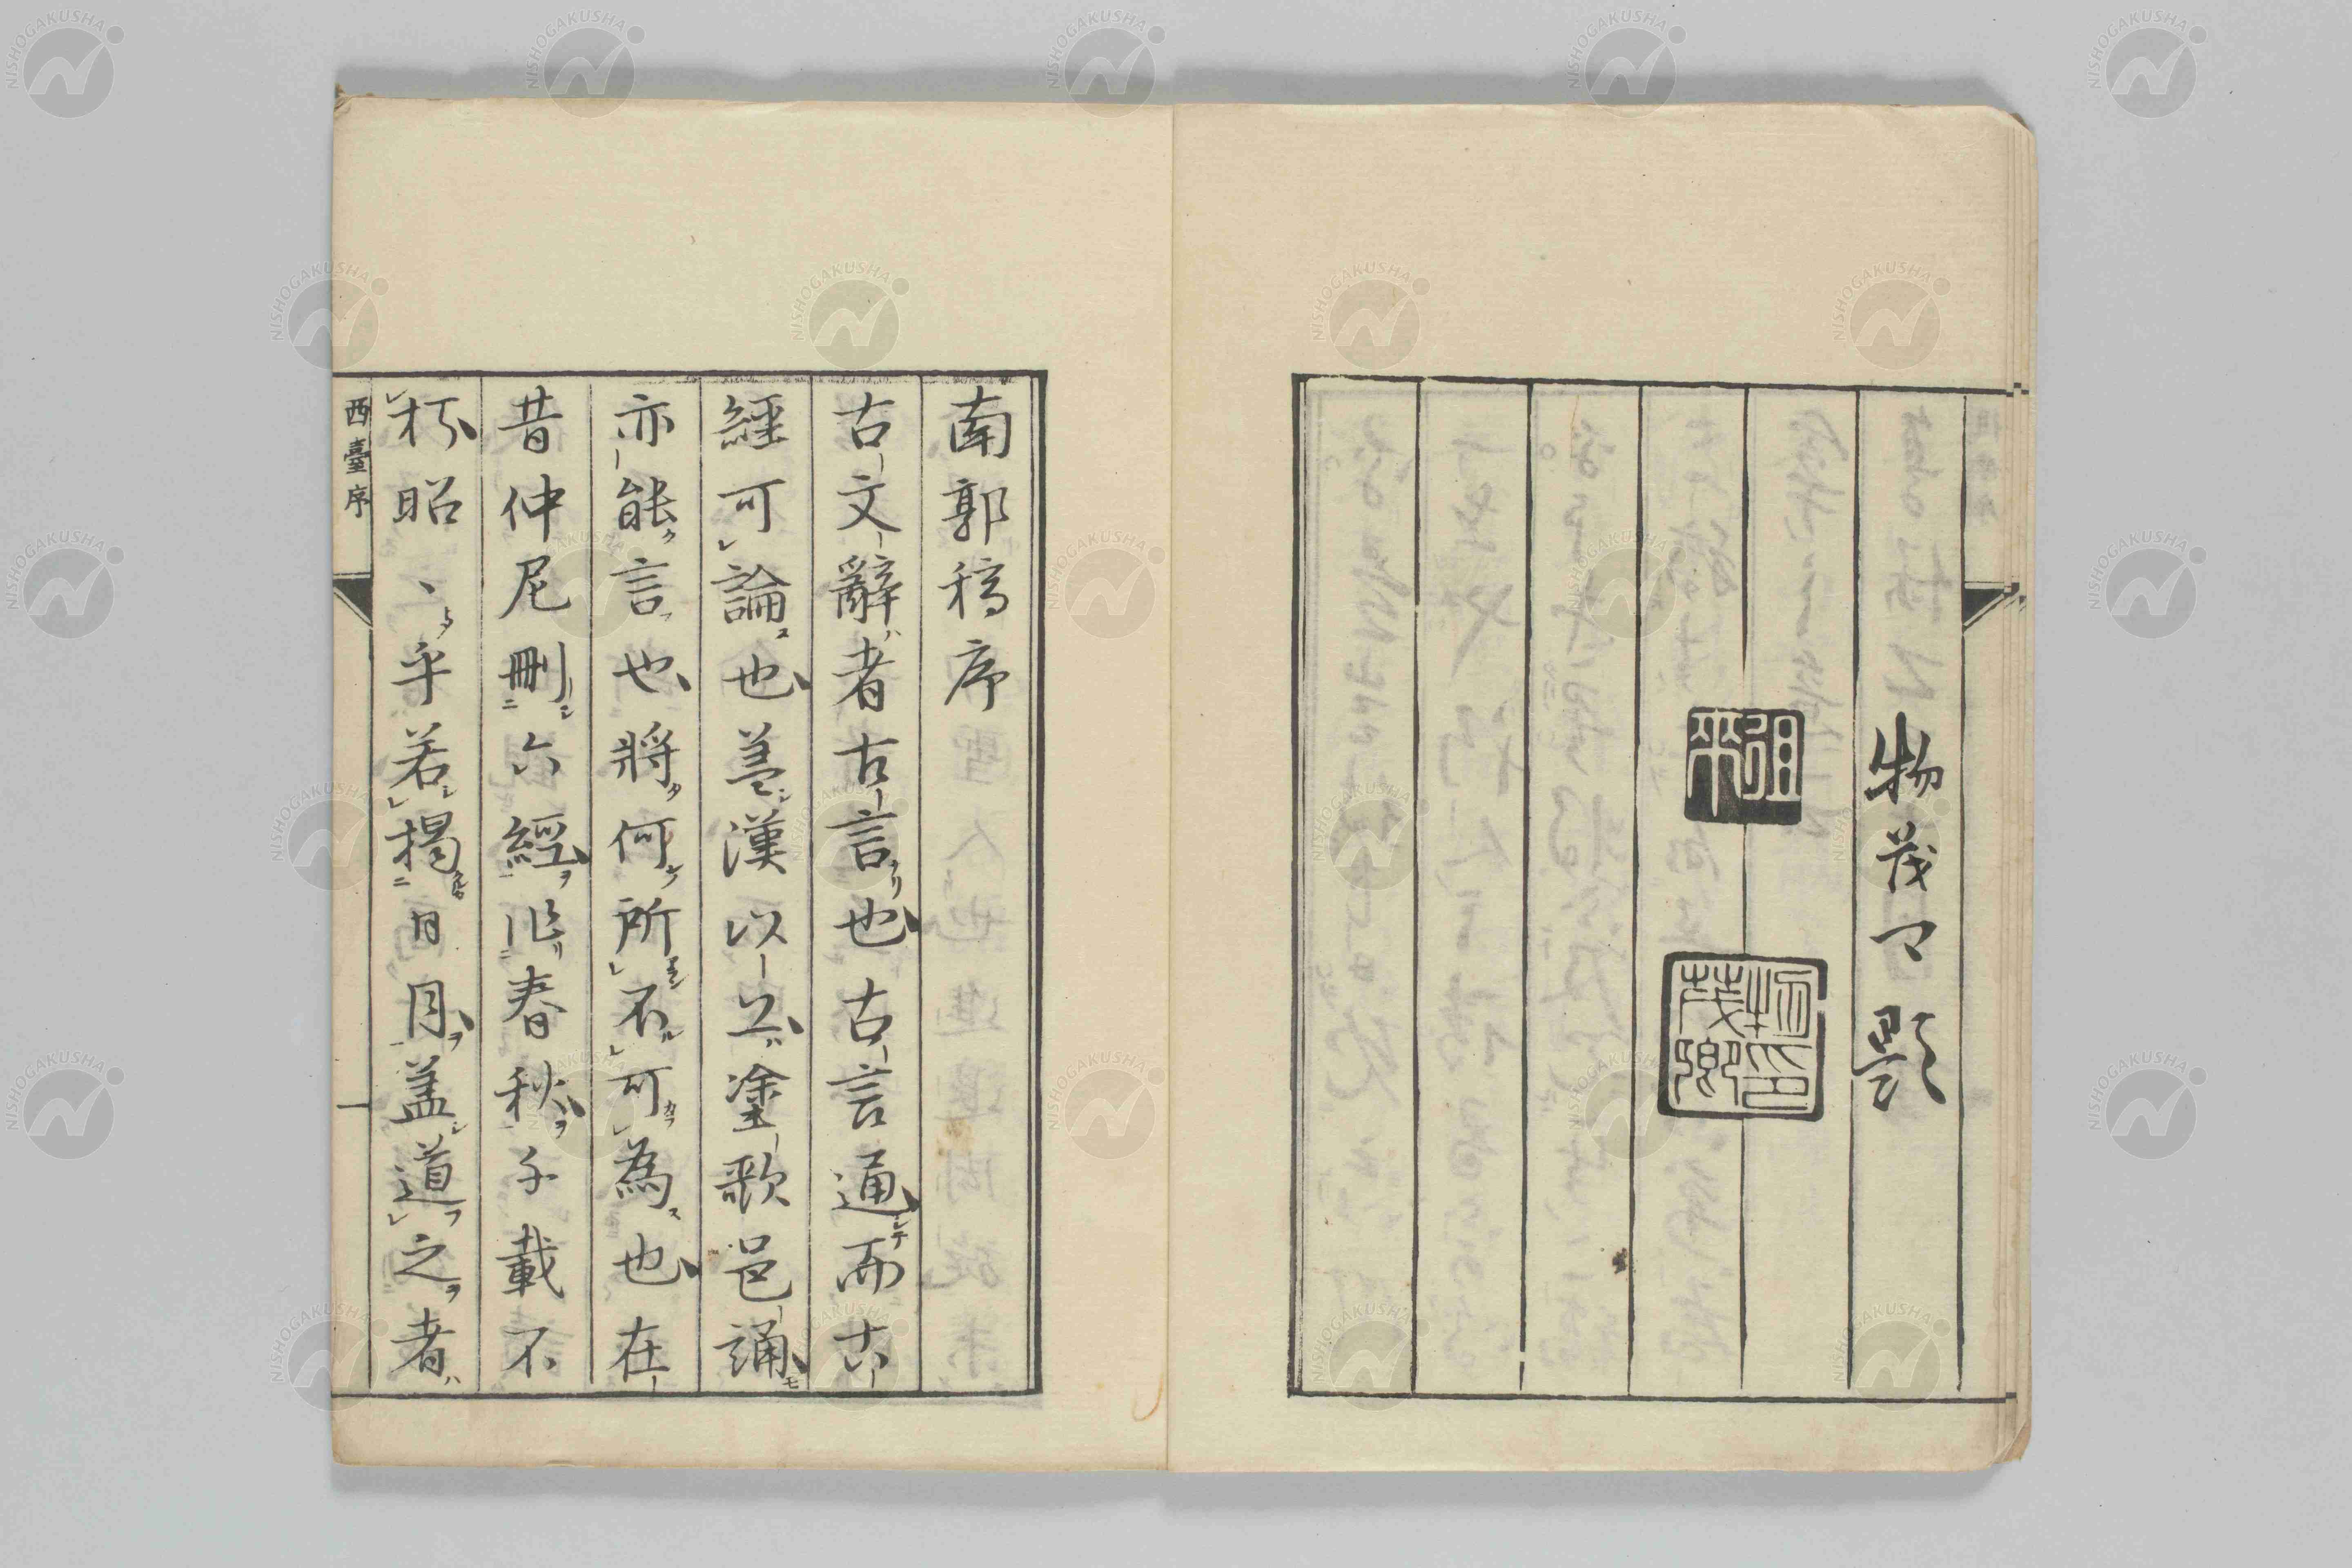 物茂卿題
徂來
物印茂卿
南郭稿序
古文辭者古言也古言通而古
經可論也蓋漢以上塗歌邑誦
亦能言也將何所不可為也在
昔仲尼刪六經作春秋千載不
朽昭〻乎若揭日月蓋道之者
西臺序
一